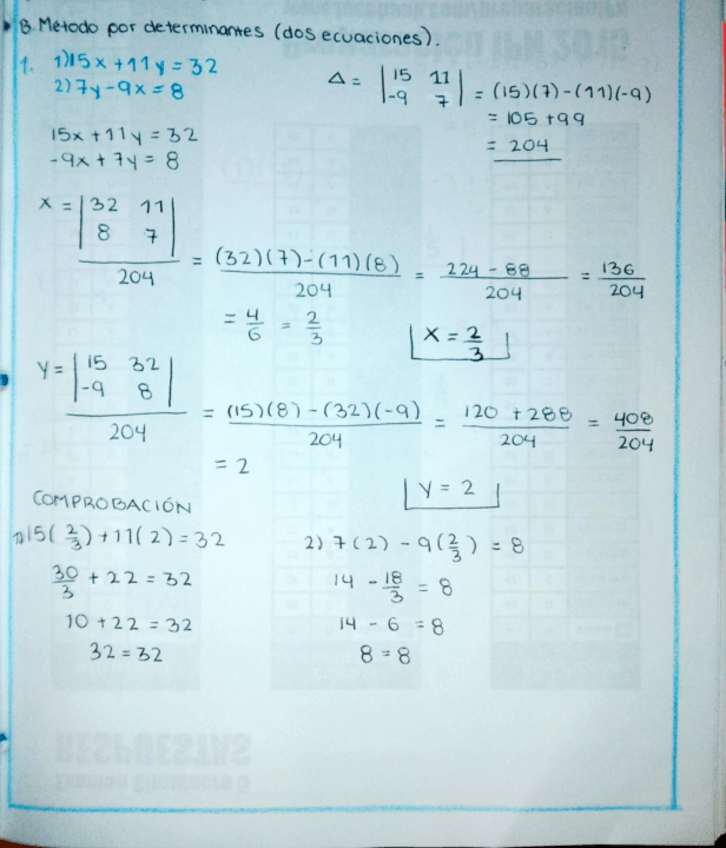 B. Método por determinantes (dos ecuaciones).
1. 1) 15x + 11y = 32
2) 7y - 9x = 8
Δ = | 15 11 |
| -9 7 | = (15)(7) - (11)(-9)
= 105 + 99
= 204
15x + 11y = 32
-9x + 7y = 8
x = | 32 11 |
| 8 7 |
204
= (32)(7) - (11)(8) / 204 = 224 - 88 / 204 = 136 / 204
= 4/6 = 2/3
x = 2/3
y = | 15 32 |
| -9 8 |
204
= (15)(8) - (32)(-9) / 204 = 120 + 288 / 204 = 408 / 204
= 2
y = 2
COMPROBACIÓN
1) 15(2/3) + 11(2) = 32
30/3 + 22 = 32
10 + 22 = 32
32 = 32
2) 7(2) - 9(2/3) = 8
14 - 18/3 = 8
14 - 6 = 8
8 = 8
RESPUESTAS